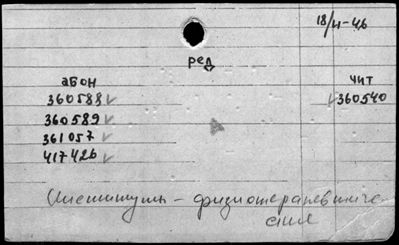 18/II-46
ред
абон чит
360588✓ ✓360540
360589✓
361057✓
417426✓
А
Институты - физиотерапевтиче
ские